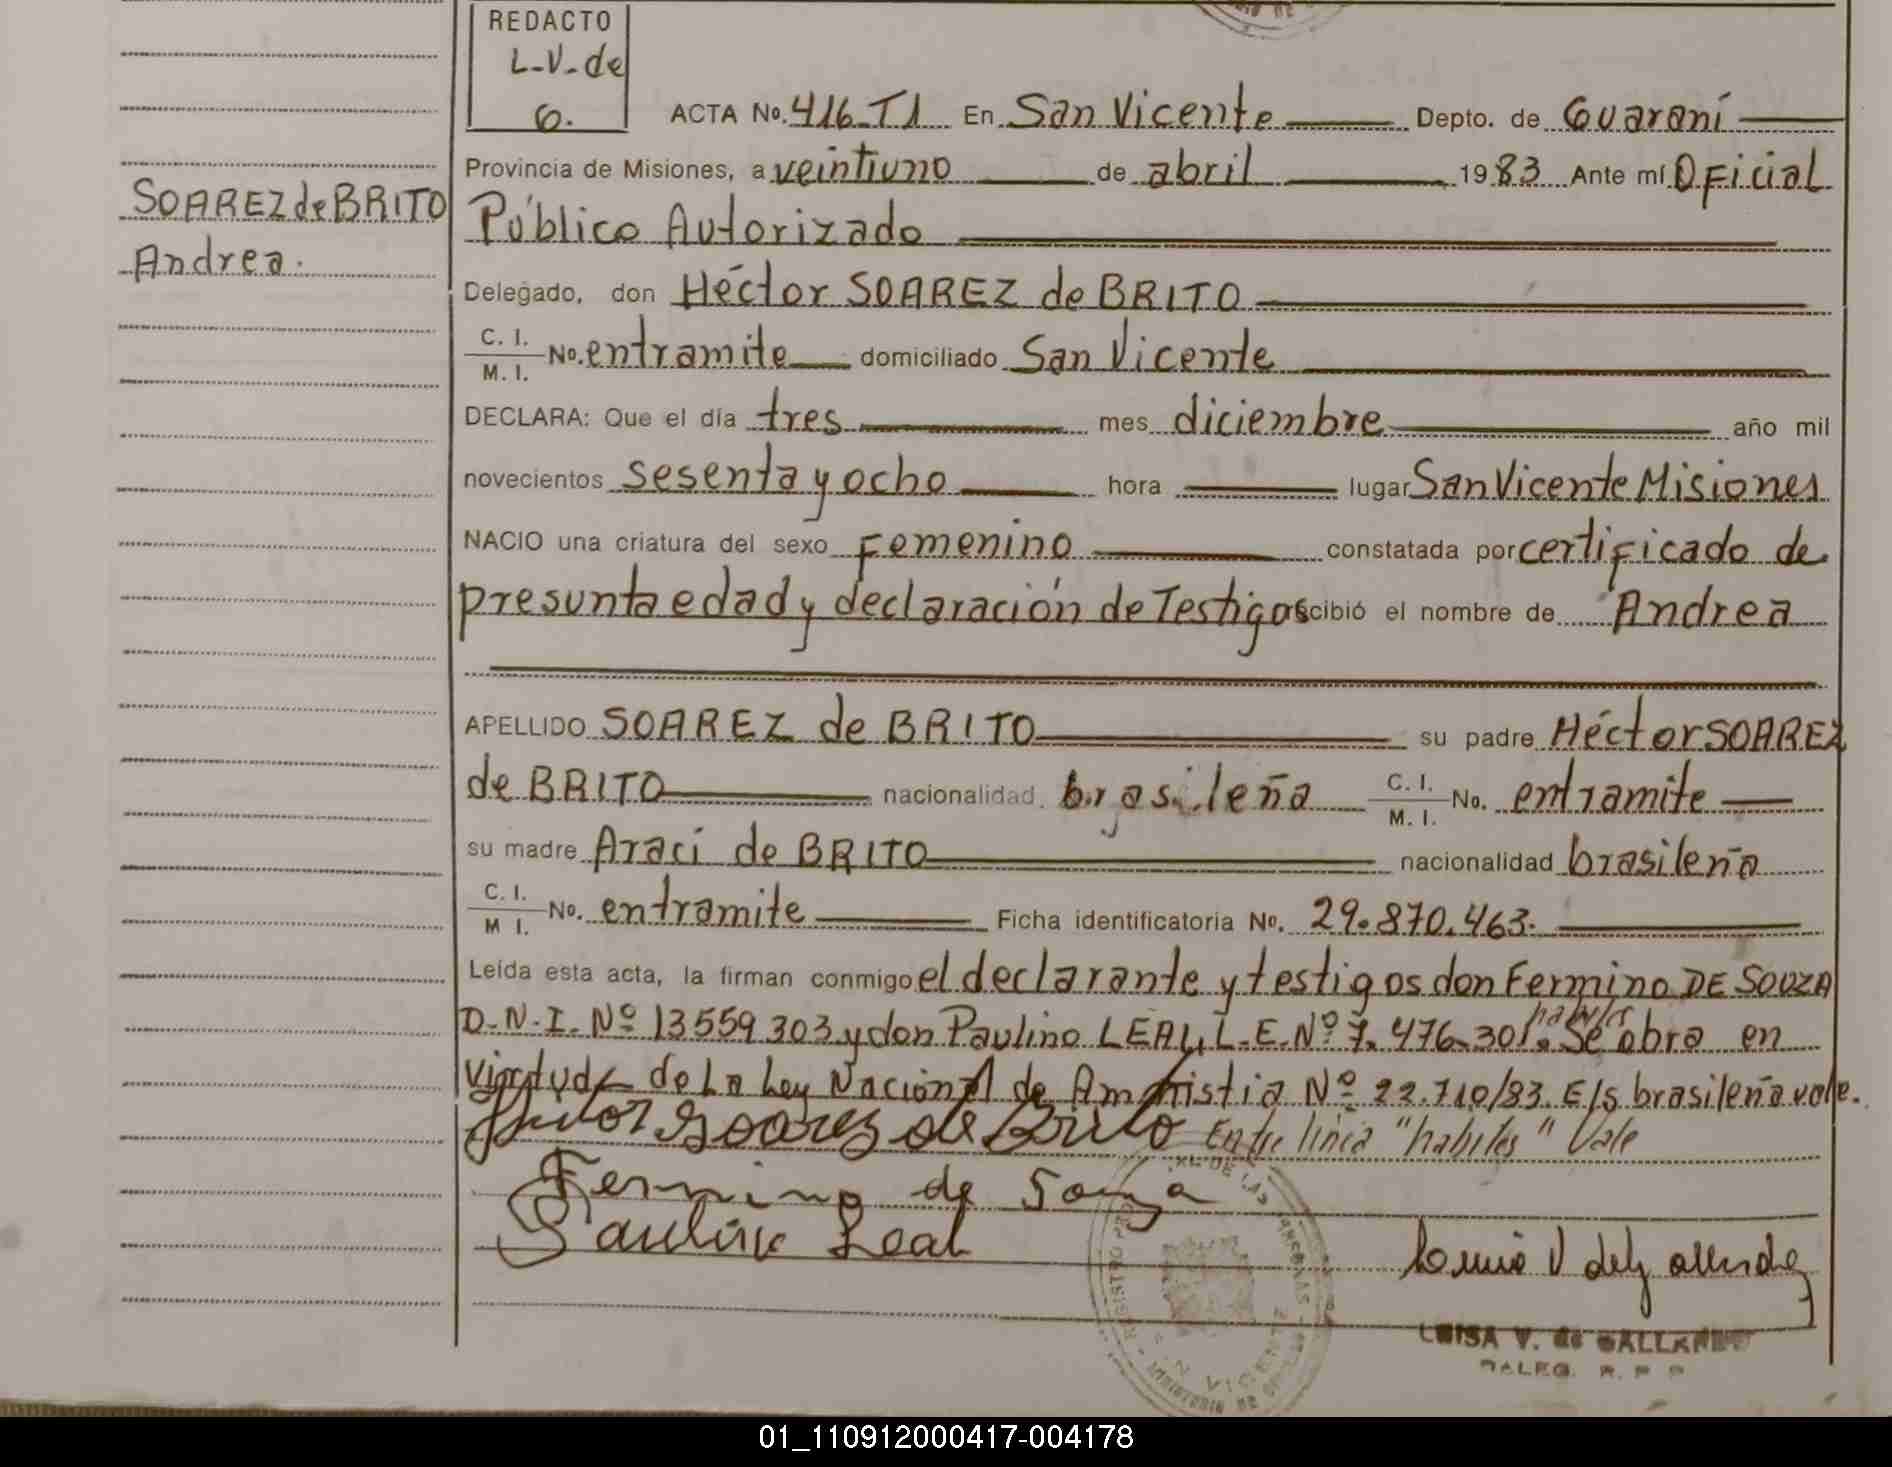 REDACTO
L-V-de
G.
ACTA No. 416 T1 En San Vicente Depto. de Guaraní
Provincia de Misiones, a veintiuno de abril 1983 Ante mí Oficial
SOAREZ de BRITO
Andrea.
Público Autorizado
Delegado, don Héctor SOAREZ de BRITO
C. I.
M. I. No. entramite domiciliado San Vicente
DECLARA: Que el día tres mes diciembre año mil
novecientos sesenta y ocho hora lugar San Vicente Misiones
NACIO una criatura del sexo Femenino constatada por certificado de
presunta edad y declaración de Testigos cibió el nombre de Andrea
APELLIDO SOAREZ de BRITO su padre Héctor SOAREZ
de BRITO nacionalidad brasileña C. I. M. I. No. entramite
su madre Araci de BRITO nacionalidad brasileña
C. I.
M I. No. entramite Ficha identificatoria No. 29.870.463.
Leída esta acta, la firman conmigo el declarante y testigos don Fermino DE SOUZA
D.N.I. Nº 13559303 y don Paulino LEAL, L.E. Nº 7.476.301 habiles. Se obra en
virtud de La Ley Nacional de Amnistia Nº 22.710/83. E/s brasileña vale.
Soarez de Brito Entre linia "habiles" Vale
Fermino de Souza
Paulino Leal
LUISA V. de GALLARDO
DALEG. R. P. P
SAN VICENTE
01_110912000417-004178